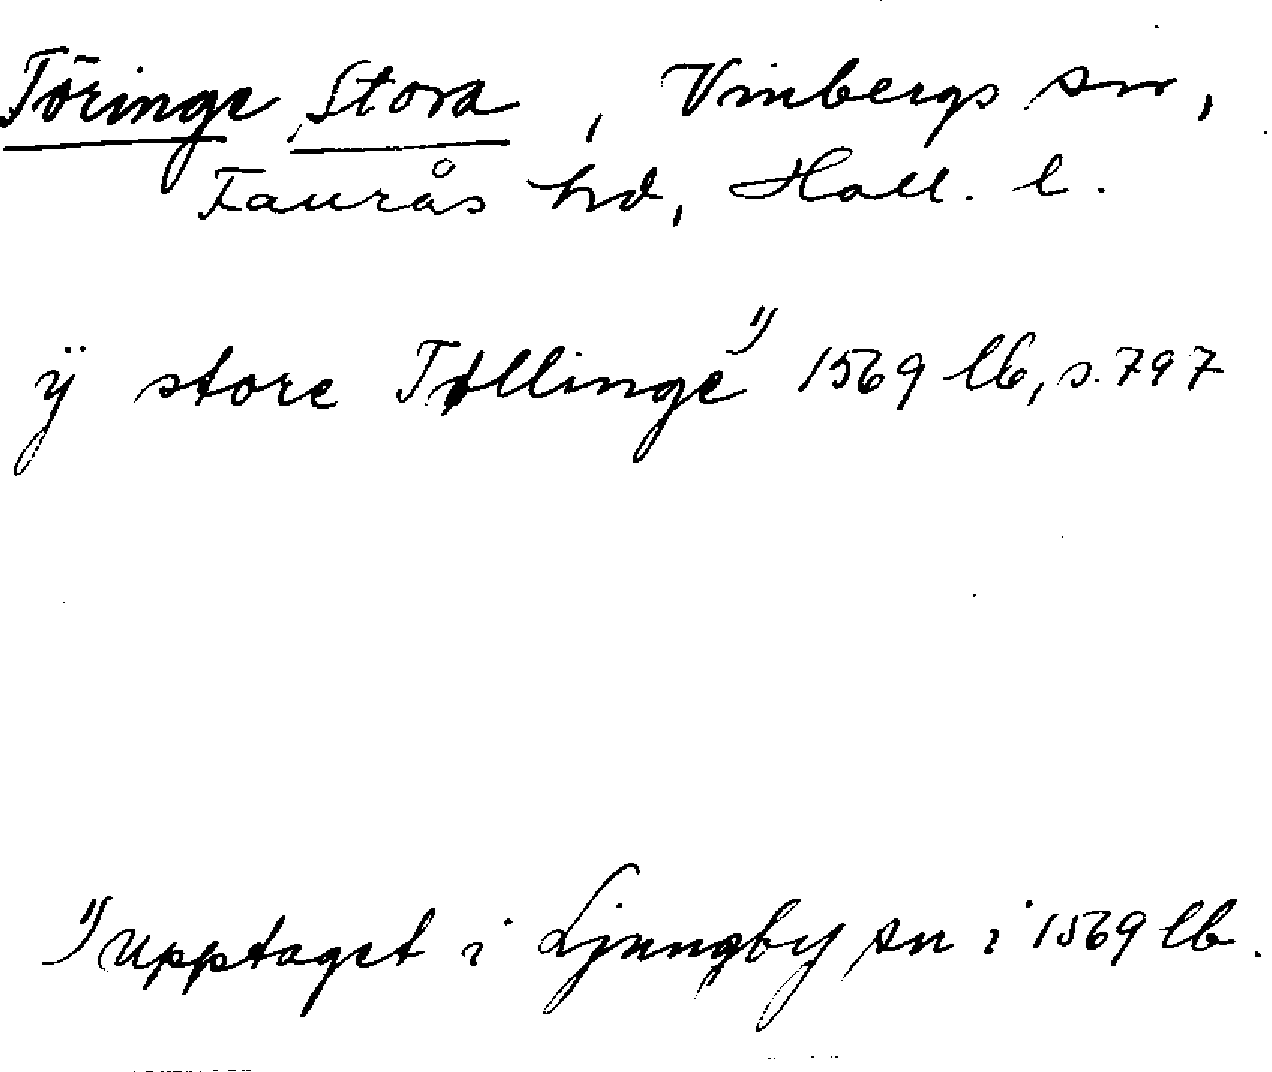 Töringe Stora, Vinbergs sn,
Faurås hd, Hall. l.
ÿ store Tøllinge 1) 1569 lb, s. 797
1) Upptaget i Ljungby sn i 1569 lb.